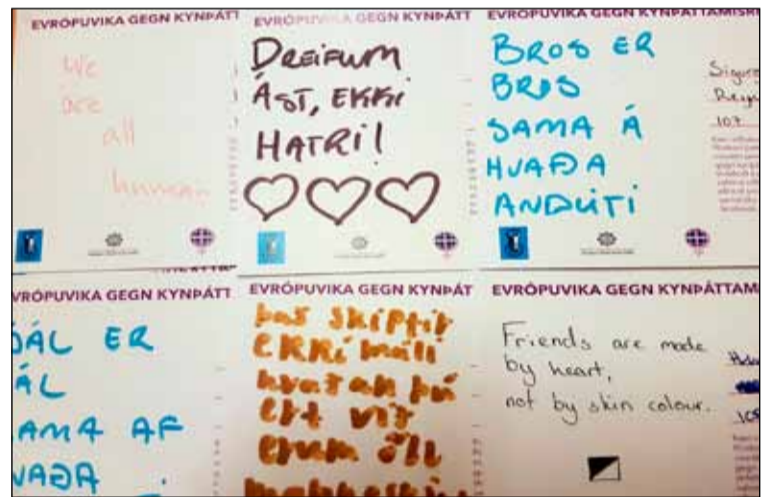 EVRÓPUVIKA GEGN KYNÞÁTT
We
are
all
human
EVRÓPUVIKA GEGN KYNÞÁTT
DREIFUM
ÁST, EKKI
HATRI!
EVRÓPUVIKA GEGN KYNÞÁTTAMISR
BROS ER
BROS
SAMA Á
HVAÐA
ANDLITI
107
VRÓPUVIKA GEGN KYNÞÁTT
ÐÁL ER
ÁL
AMA AF
VAÐA
EVRÓPUVIKA GEGN KYNÞÁT
það skiptir
ekki máli
hvaðan þú
ert við
erum öll
EVRÓPUVIKA GEGN KYNÞÁTTAM
Friends are made
by heart,
not by skin colour.